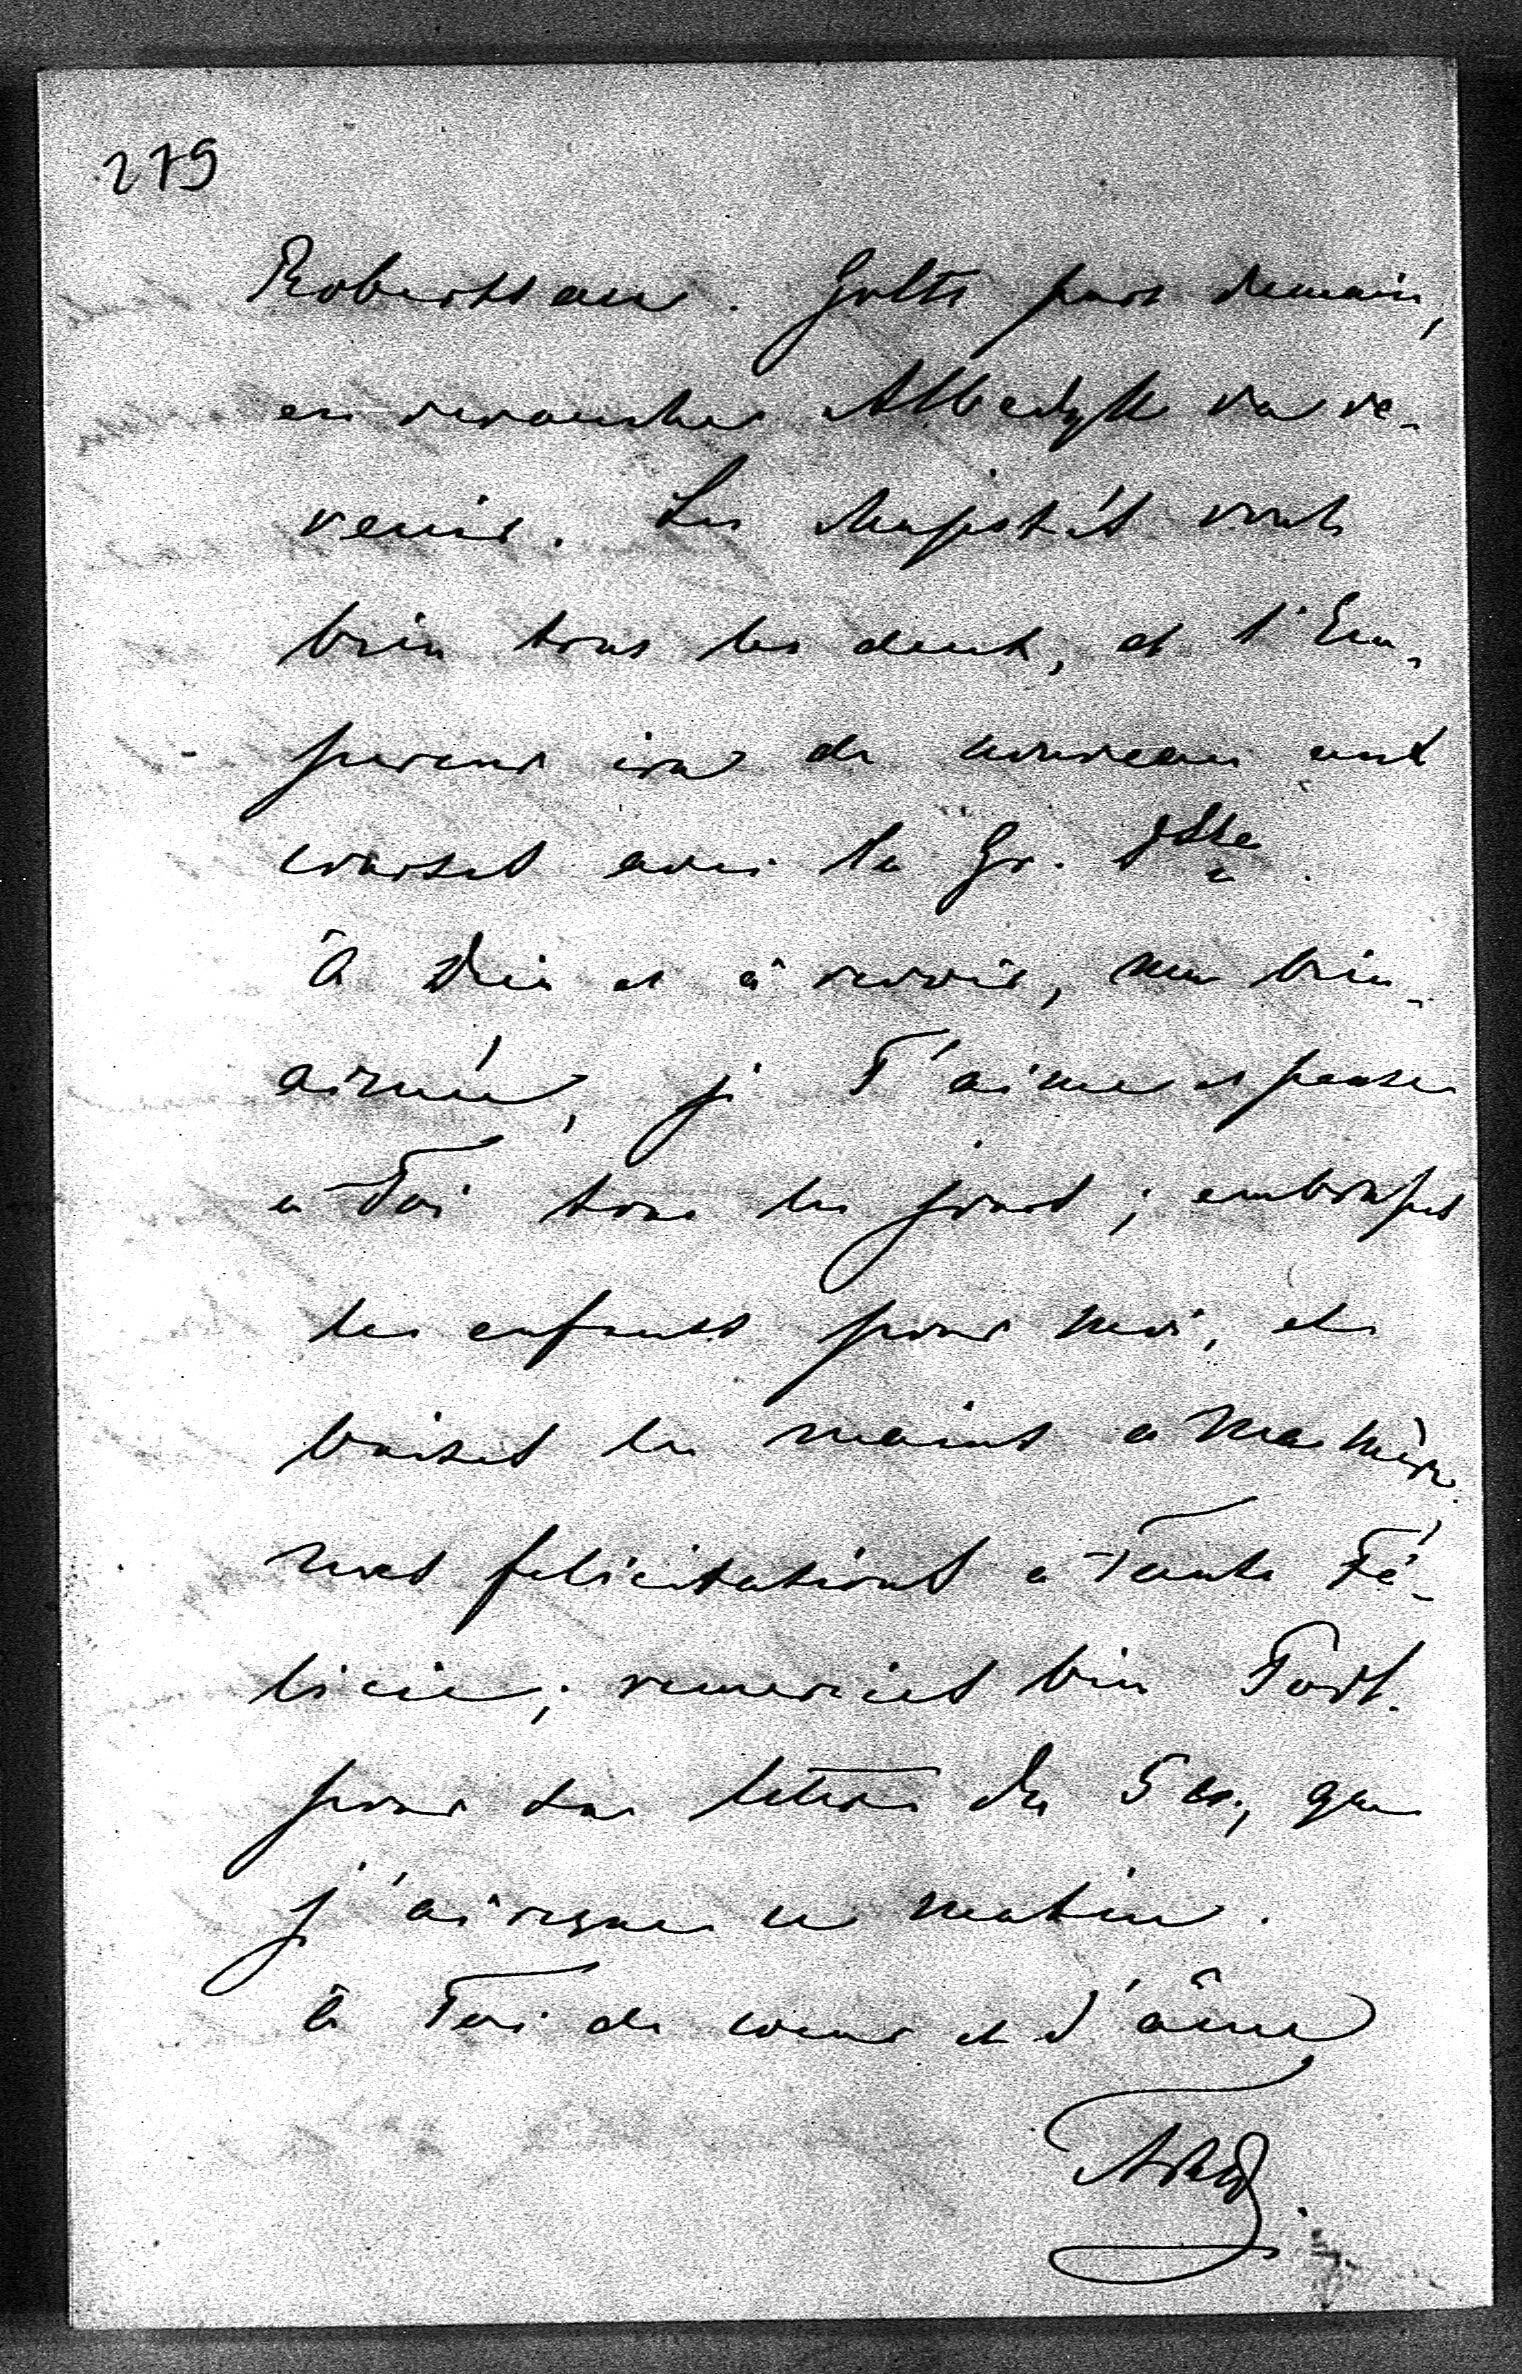 279
Robertsau. Goltz part demain,
en revanche Albedyll va re-
venir. Les Majestés vont
bien tous les deux, et l'Em-
pereur ira de nouveau aux
courses avec la Gr. Dsse
à Dieu et à revoir, ma bien-
aimée, je T'aime et pense
à Toi tous les jours; embrasses
les enfants pour moi, et
baises les mains à Ma mère.
mes felicitations à Tante Fé-
licie; remercies bien
pour sa lettre du 5 cr., que
j'ai reçue ce matin.
à Toi de coeur et d'âme